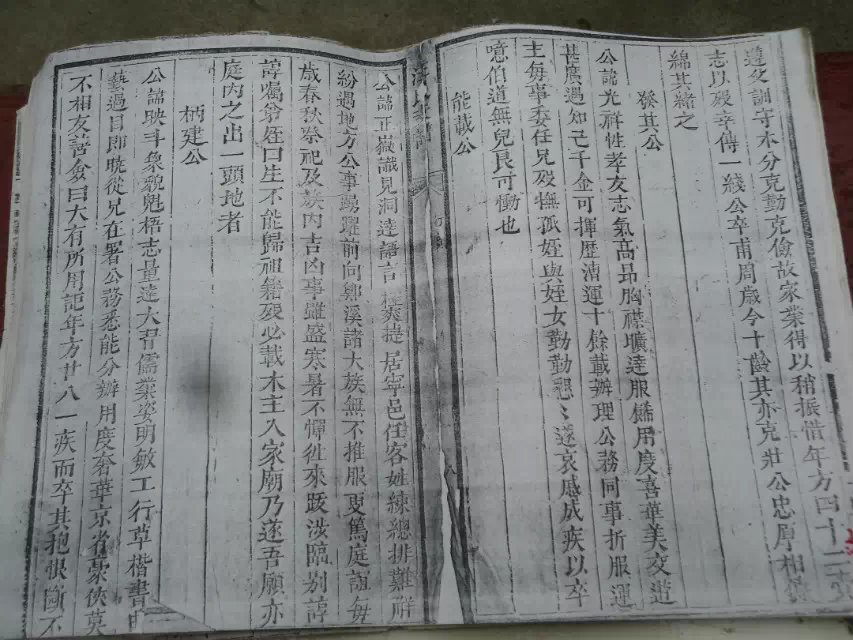 遵父訓守木分克勤克儉故家業得以稍振惜年方四十二
志以殁幸傳一綫公卒甫周歲今十齡其亦克壯公忠厚相
綿其緒之
發其公
公諱光祥性孝友志氣高昂胸襟壙達服餙用度喜華美交遊
甚廣遇知己千金可揮歷漕運十餘載辦理公務同事折服運
主每事委任兄歿撫孤姪與姪女勤勤懇〻遂哀慼成疾以卒
噫伯道無兒良可慟也
能載公
公諱正嶽識見洞達語言爽捷居寧邑任客姓練總排難解
紛遇地方公事踴躍前向鄉溪諸大族無不推服更篤庭誼每
歲春秋祭祀及族內吉凶事雖盛寒暑不憚徃來跋涉臨別諄
諄囑爺姪曰生不能歸祖籍歿必載木主入家廟乃遂吾願亦
庭內之出一頭地者
柄建公
公諱映斗象貌魁梧志量達大習儒業姿明敏工行草楷書
藝過目即曉從兄在署公務悉能分辦用度奢華京省豪俠莫
不相友善僉曰大有所用詎年方廿八一疾而卒其抱恨極不